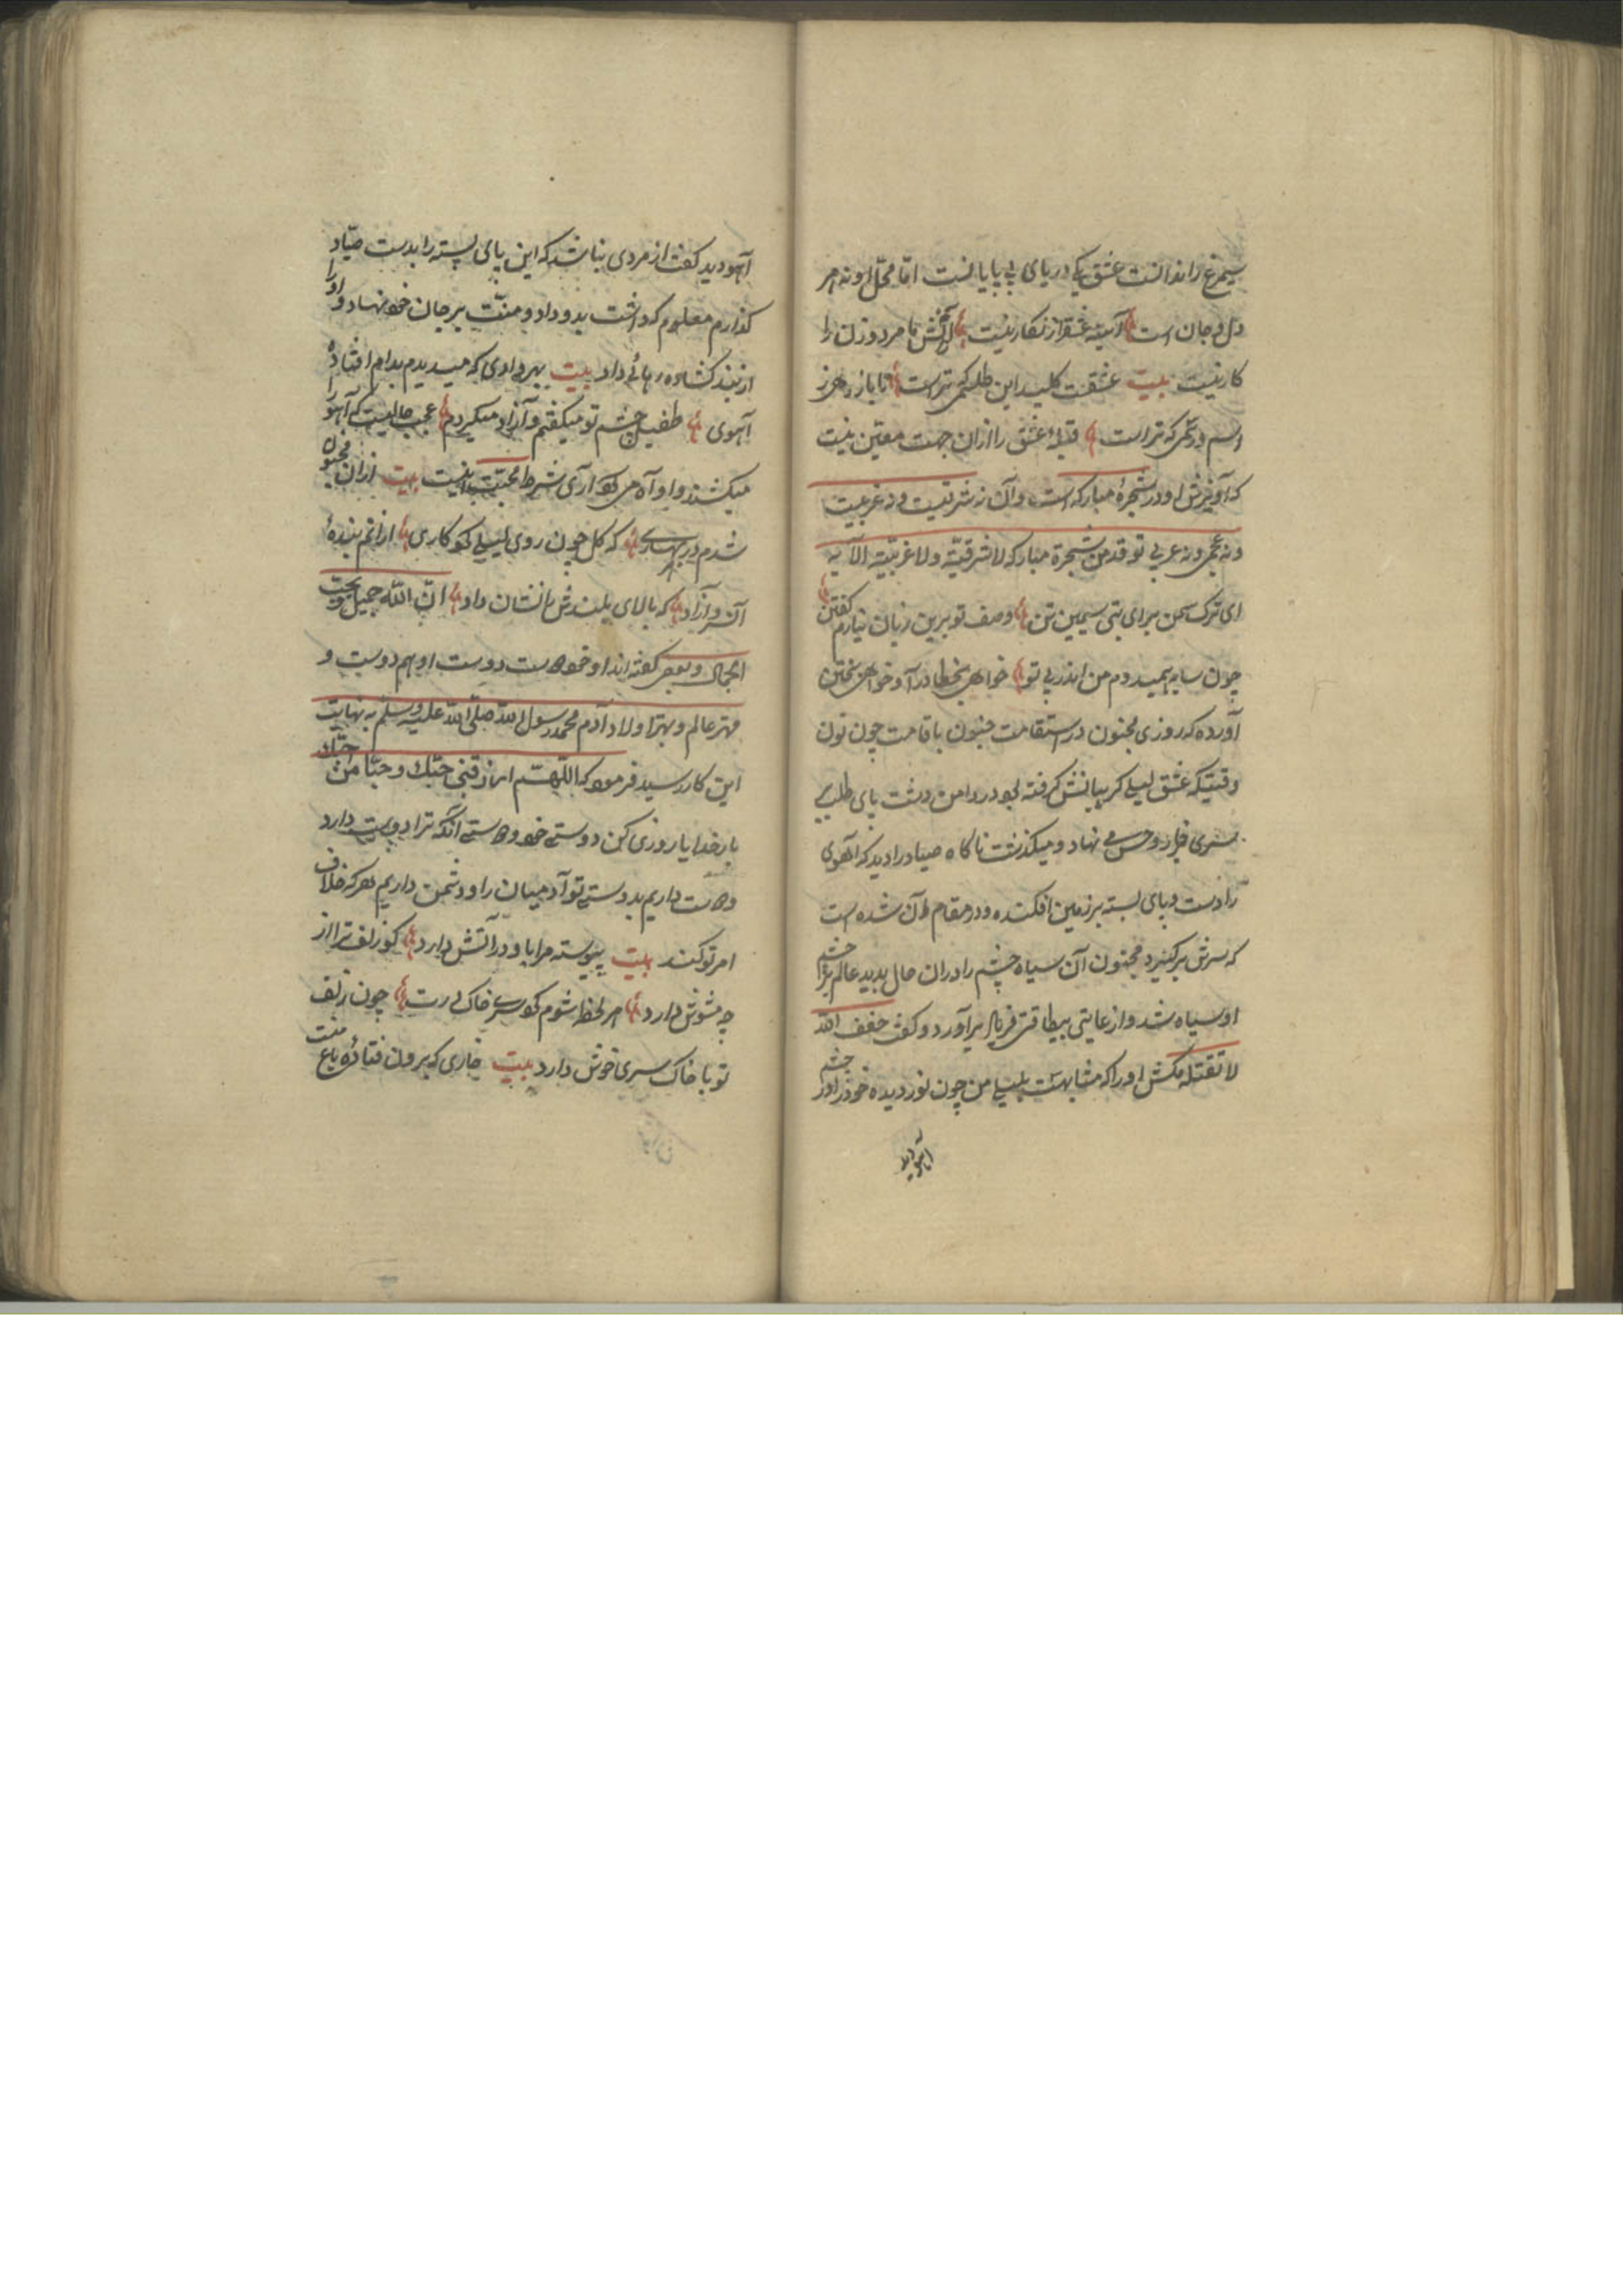 سیمرغ را ندانست عشق یکی دریای بی پایانست امّا محلّ او نه هر
دل و جان است آیینه عشق از نکار نیست با مرد و زن را
کار نیست بیت عشقت کلید این طلسمی تراست تا باز رهی ز
اسم و رسمی که تراست قبلهٔ عشق را ازان جهت معیّن نیست
که آویزش او در شجرهٔ مبارکه است وان نه شرقیت و نه غربیت
و نه عجمی و نه عربی توقد من شجرة مبارکه لا شرقیّة ولا غربیّة الآیه
ای ترک من برای بتی سیمین تن وصف تو برین زبان نیارم گفتن
چون سایه همیدوم من اندر پی تو خواهی بخطا در آ و خواهی بختن
آورده که روزی مجنون در استقامت جنون با قامت چون نون
وقتیکه عشق لیلی کریبانش کرفته بود در دامن دشت پای طلب بر
سری نهاد و میکذشت ناکاه صیاد را دید که آهوی
را دست و پای بسته بر زمین افکنده و در مقام آن شده است
که سرش برکیرد مجنون آن سیاه چشم را دران حال بدید عالم بر چشم
او سیاه شد و از غایتی بیطاقتی فریاد برآورد و کفت خفف الله
لا تقتله مکش او را که مشابهت بلیلی من چون نور دیده خود را در چشم
آهو دید
آهو دید کفت از مردی نباشد که این پای بسته را بدست صیّاد
کذارم معلوم که داشت بدو داد و منّت بر جان خود نهاد و او را
از بند کشاده رهائی داد بیت بهر وادی که میدیدم بدام افتادهٔ
آهوی طفیل چشم تو میکفتم و آزاد میکردم عجب حالیست که آهو را
میکشند و او آه می آری شرط محبت اینست بیت ازان مجنون
شدم در بهاری که کل چون روی لیلی کو کاری ازانم بندهٔ
آن سرو آزاد که بالای بلندش نشان داد انّ الله جمیل و یحبّ
الجمال و بعضی کفته اند او خود دوست دوست او هم دوست و
مهتر عالم و بهتر اولاد آدم محمد رسول الله صلی الله علیه و سلم به نهایت
این کار رسید فرمود که اللّهمّ ارزقنی حبّک و حبّا من احبّک
بار خدایا روزی کن دوستی خود و دوستی آنکه ترا دوست دارد
دوست داریم بدوستی تو آدمیان را و دشمن داریم هر که خلاف
امر تو کند بیت پیوسته مرا با و در آتش دارد کو زلف ترا از
چه مشوش دارد هر لحظه شوم کو سر خاک درت چون زلف
تو با خاک سری خوش دارد بیت خاری که برون فتادهٔ باغ منت